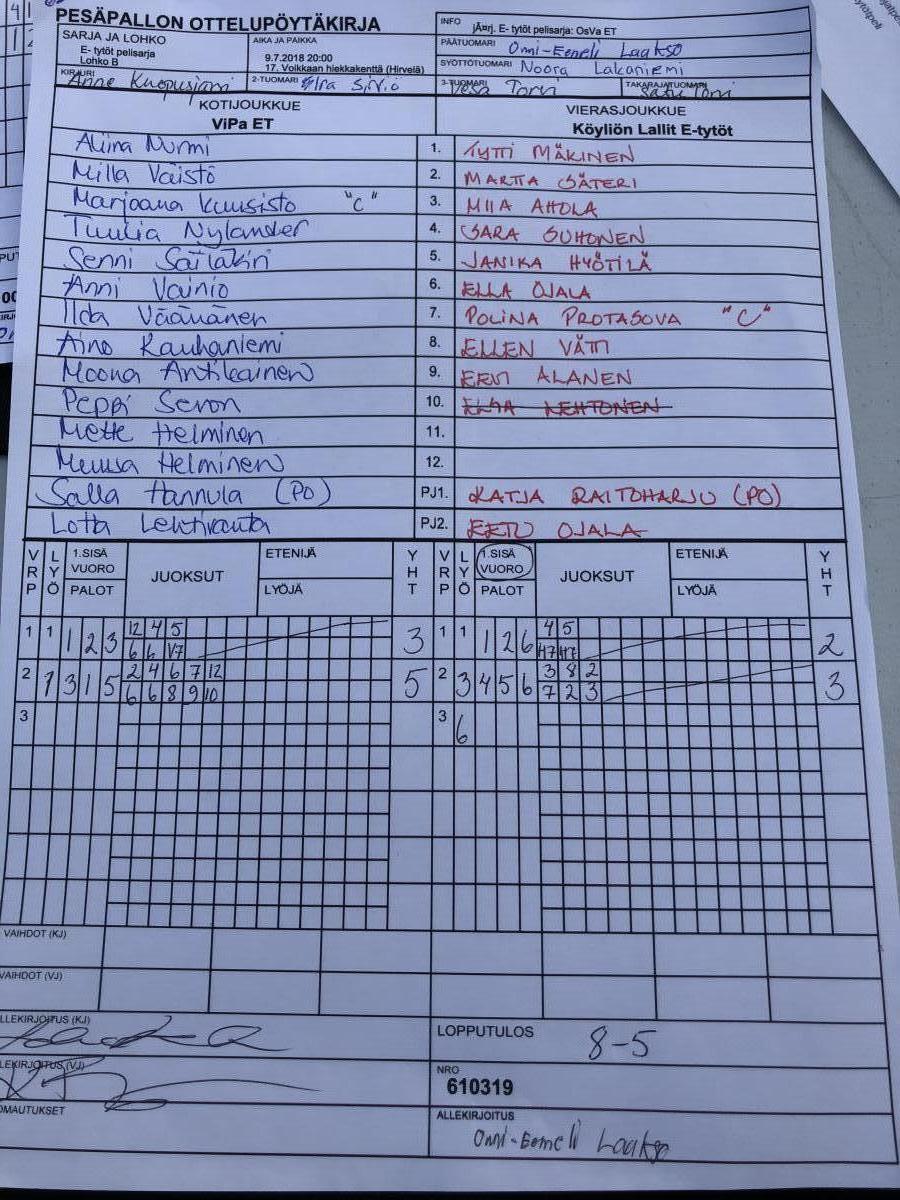 PESÄPALLON OTTELUPÖYTÄKIRJA
INFO
jÃ¤rj. E- tytöt pelisarja: OsVa ET
SARJA JA LOHKO
E- tytöt pelisarja
Lohko B
AIKA JA PAIKKA
9.7.2018 20:00
17. Volkkaan hiekkakenttä (Hirvelä)
PÄÄTUOMARI Onni-Eemeli Laakso
SYÖTTÖTUOMARI Noora Lakaniemi
KIRJURI Anne Kuopusjärvi
2-TUOMARI Sirviö
3-TUOMARI Vesa Torvi
TAKARAJATUOMARI Satu Torni
KOTIJOUKKUE
ViPa ET
VIERASJOUKKUE
Köyliön Lallit E-tytöt
Aliina Nurmi 1. TYTTI MÄKINEN
Milla Väistö 2. MARTTA SÄTERI
Marjaana Kuusisto "C" 3. MIIA AHOLA
Tuulia Nylander 4. SARA SUHONEN
Senni Sailakivi 5. JANIKA HYÖTILÄ
Anni Vainio 6. ELLA OJALA
Ilda Väänänen 7. POLINA PROTASOVA "C"
Aino Kauhaniemi 8. ELLEN VÄTTI
Moona Antikainen 9. EEVI ALANEN
Peppi Seron 10. ELSA LEHTONEN
Mette Helminen 11.
Helminen 12.
Salla Hannula (PO) PJ1. KATJA RAITOHARJU (PO)
Lotta Lehtivanta PJ2. EETU OJALA
VRP LYÖ 1.SISÄ VUORO PALOT JUOKSUT ETENIJÄ LYÖJÄ YHT VRP LYÖ 1.SISÄ VUORO PALOT JUOKSUT ETENIJÄ LYÖJÄ YHT
1 1 1 2 3 12 4 5 3 1 1 1 2 6 4 5 2
6 6 V7 H7 H7
2 9 3 1 5 2 4 6 7 12 5 2 3 4 5 6 3 8 2 3
6 6 8 9 10 7 2 3
3 3 6
VAIHDOT (KJ)
VAIHDOT (VJ)
LLEKIRJOITUS (KJ)
LOPPUTULOS 8-5
LEKIRJOITUS (VJ)
NRO
610319
OMAUTUKSET
ALLEKIRJOITUS
Onni-Eemeli Laakso